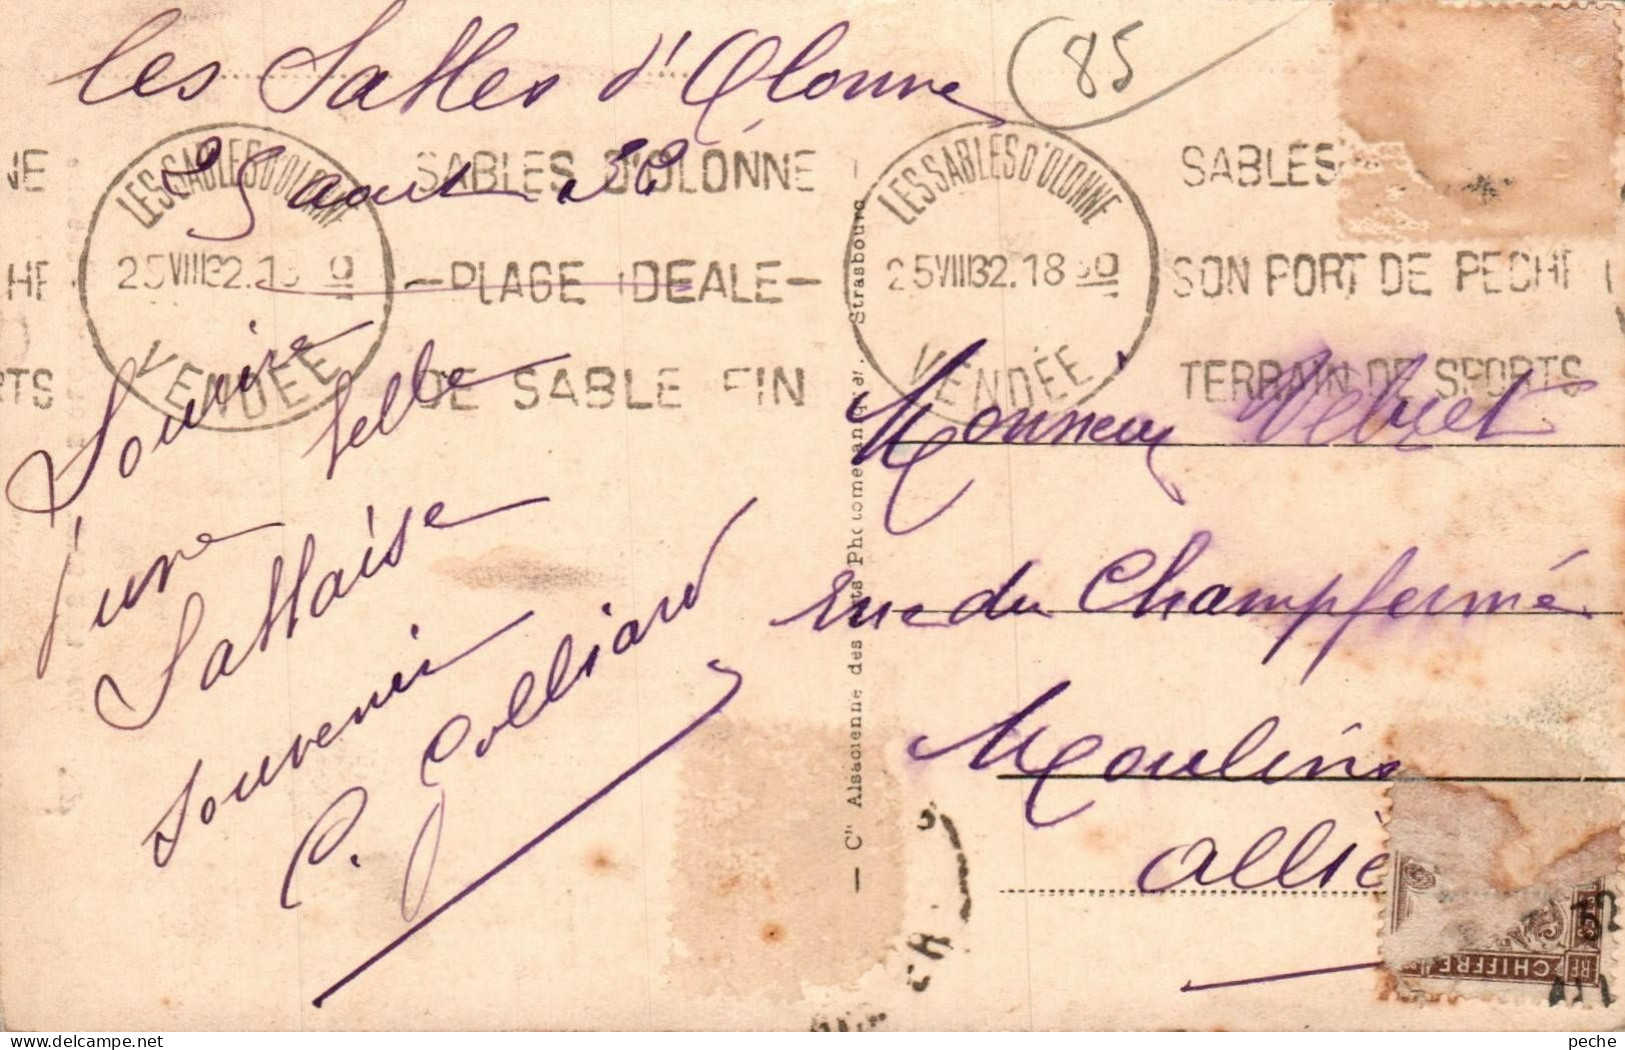 les Sables d'Olonne
25 aout 32
85
LES SABLES D'OLONNE
25 VIII 32.18 30
VENDÉE
SABLES D'OLONNE
—PLAGE IDEALE—
DE SABLE FIN
LES SABLES D'OLONNE
25 VIII 32.18 30
VENDÉE
SABLES
SON PORT DE PECHE
TERRAIN DE SPORTS
NE
HE
RTS
Sourire
belle
d'une
Sablaise
souvenir
C. Golliard
— Cie Alsacienne des Arts Photomécaniques. Strasbourg
Monsieur
rue du Champfermé
Moulins
Allier
RF CHIFFRE
delcampe.net
peche